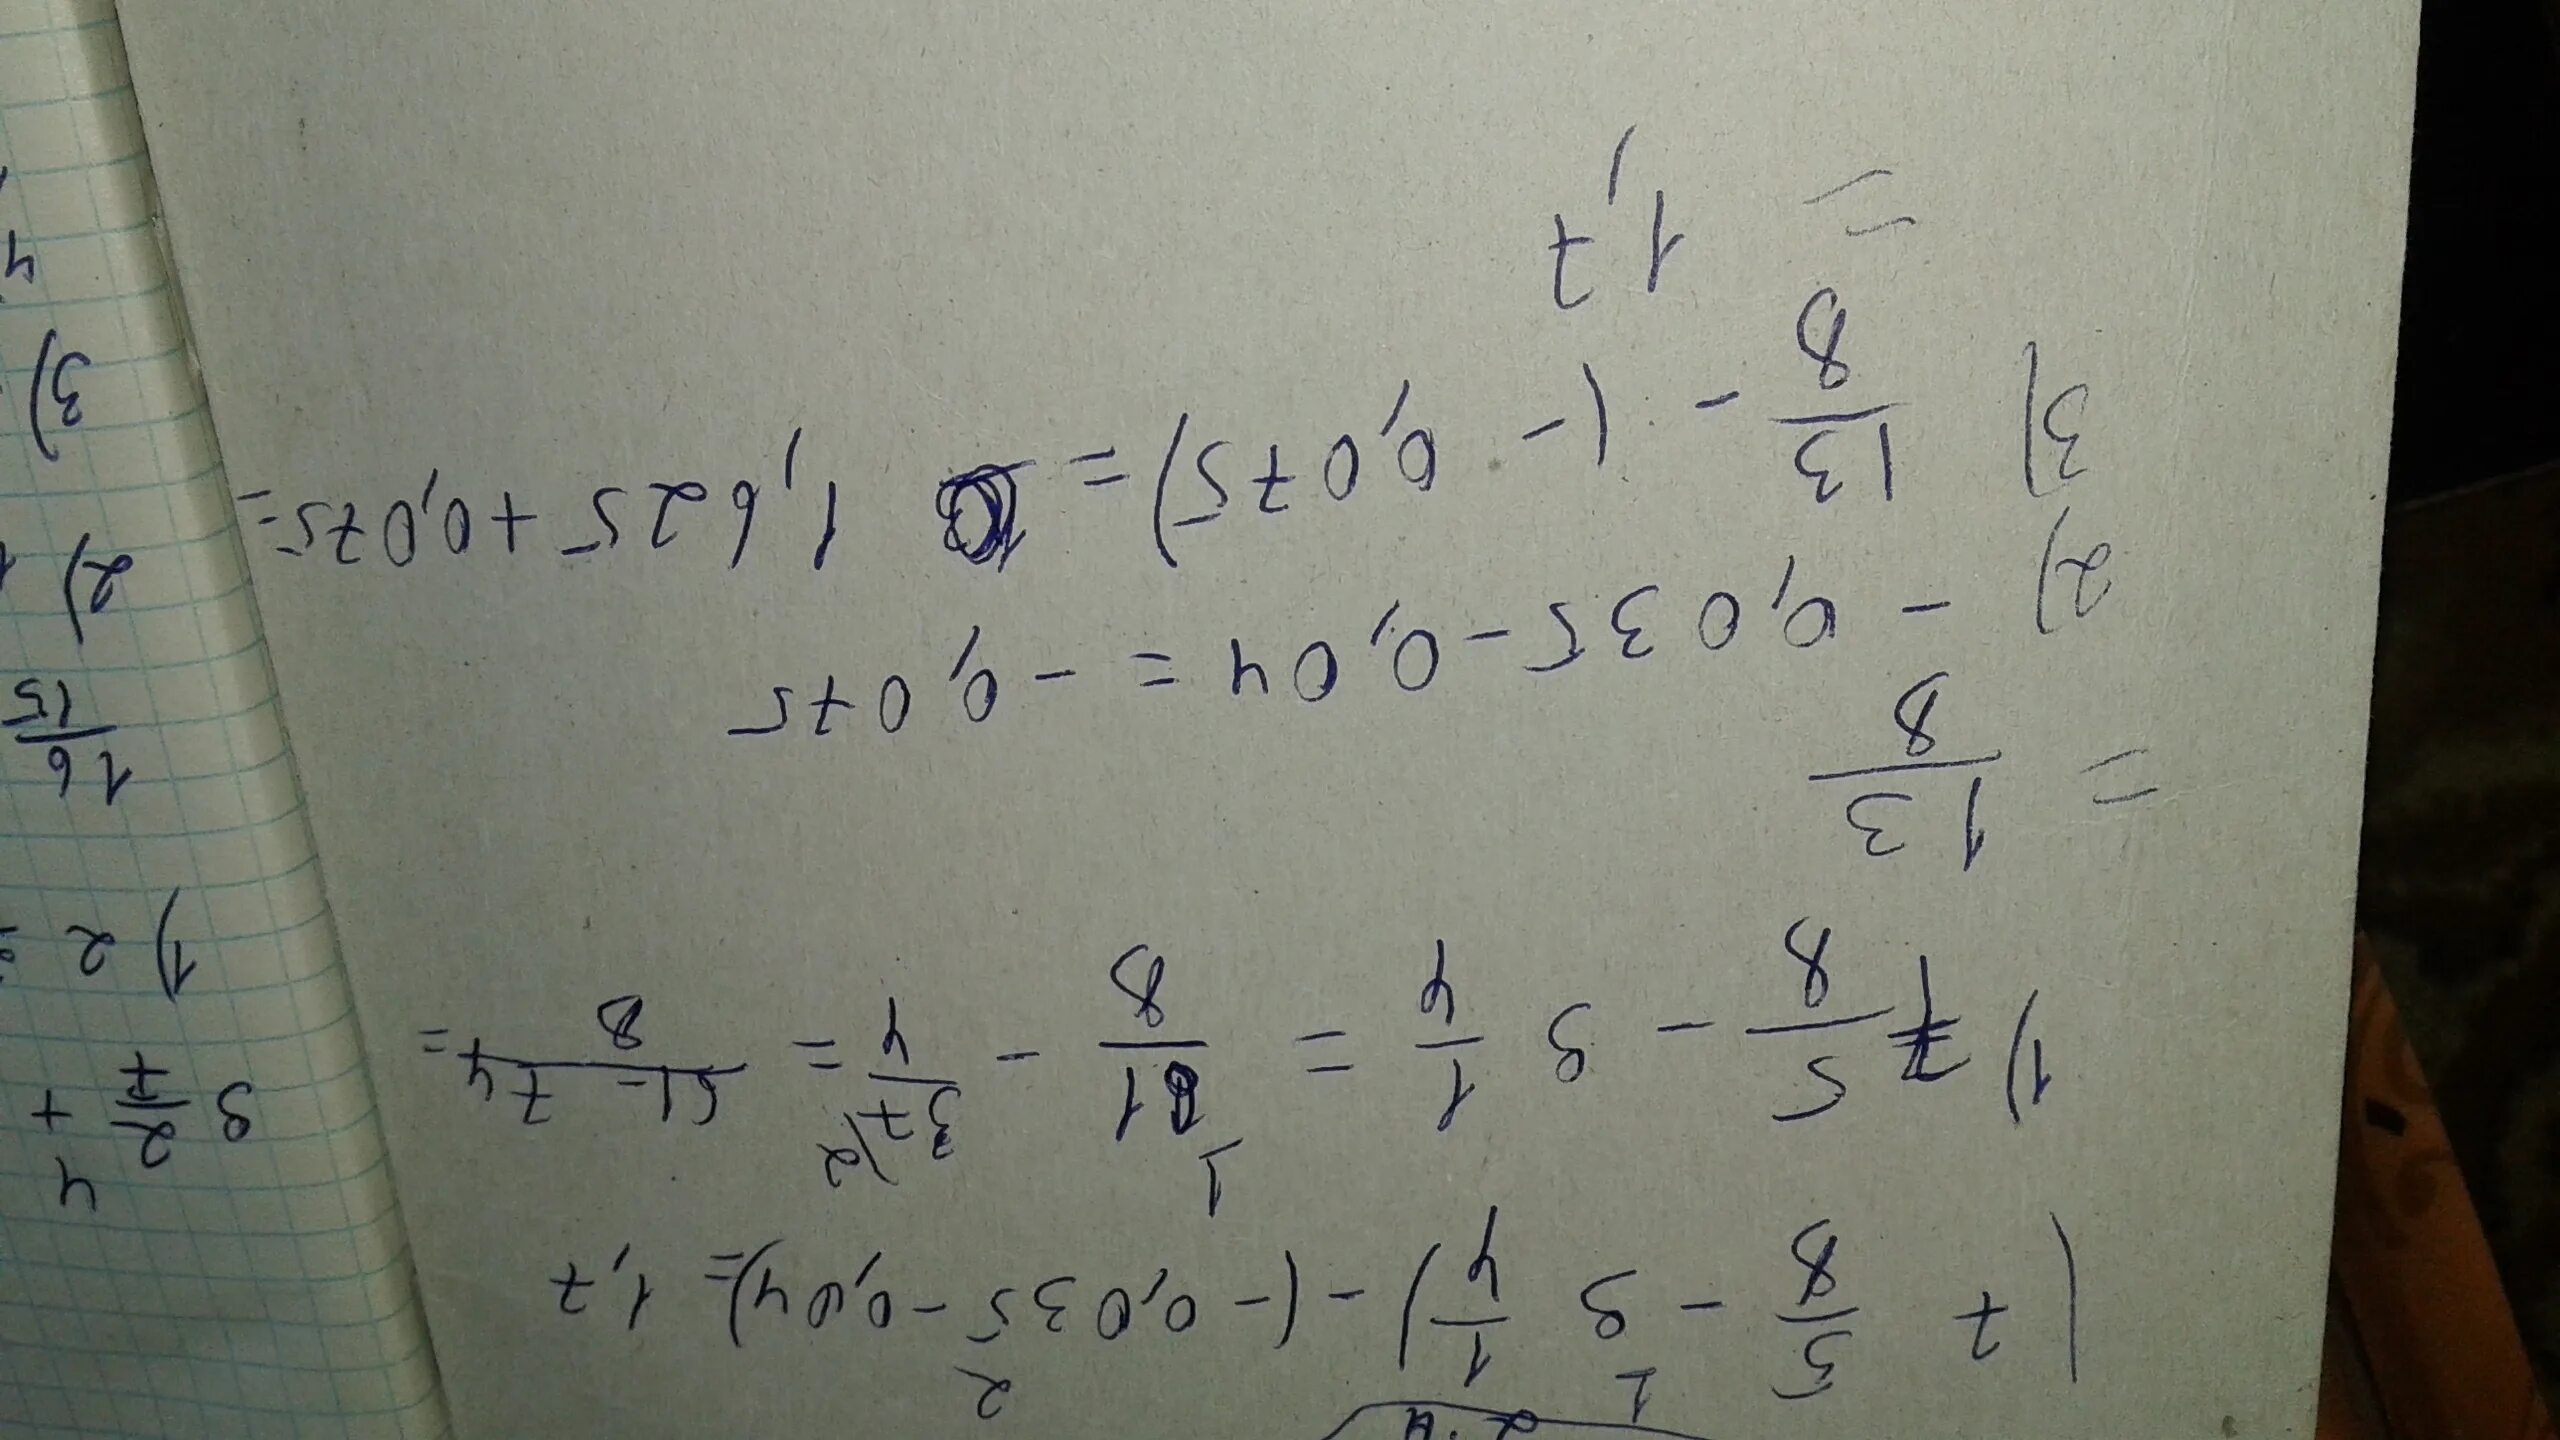 1 2
(7 5/8 - 9 1/4) - (- 0,035 - 0,04) = 1,7
1) 7 5/8 - 9 1/4 = 61/8 - 37/4 \2 = 61 - 74/8 =
= 13/8
2) - 0,035 - 0,04 = - 0,075
3) 13/8 - (- 0,075) = 1,625 + 0,075 =
= 1,7
4
9 2/7 +
1) 2
16/15
2)
3)
4